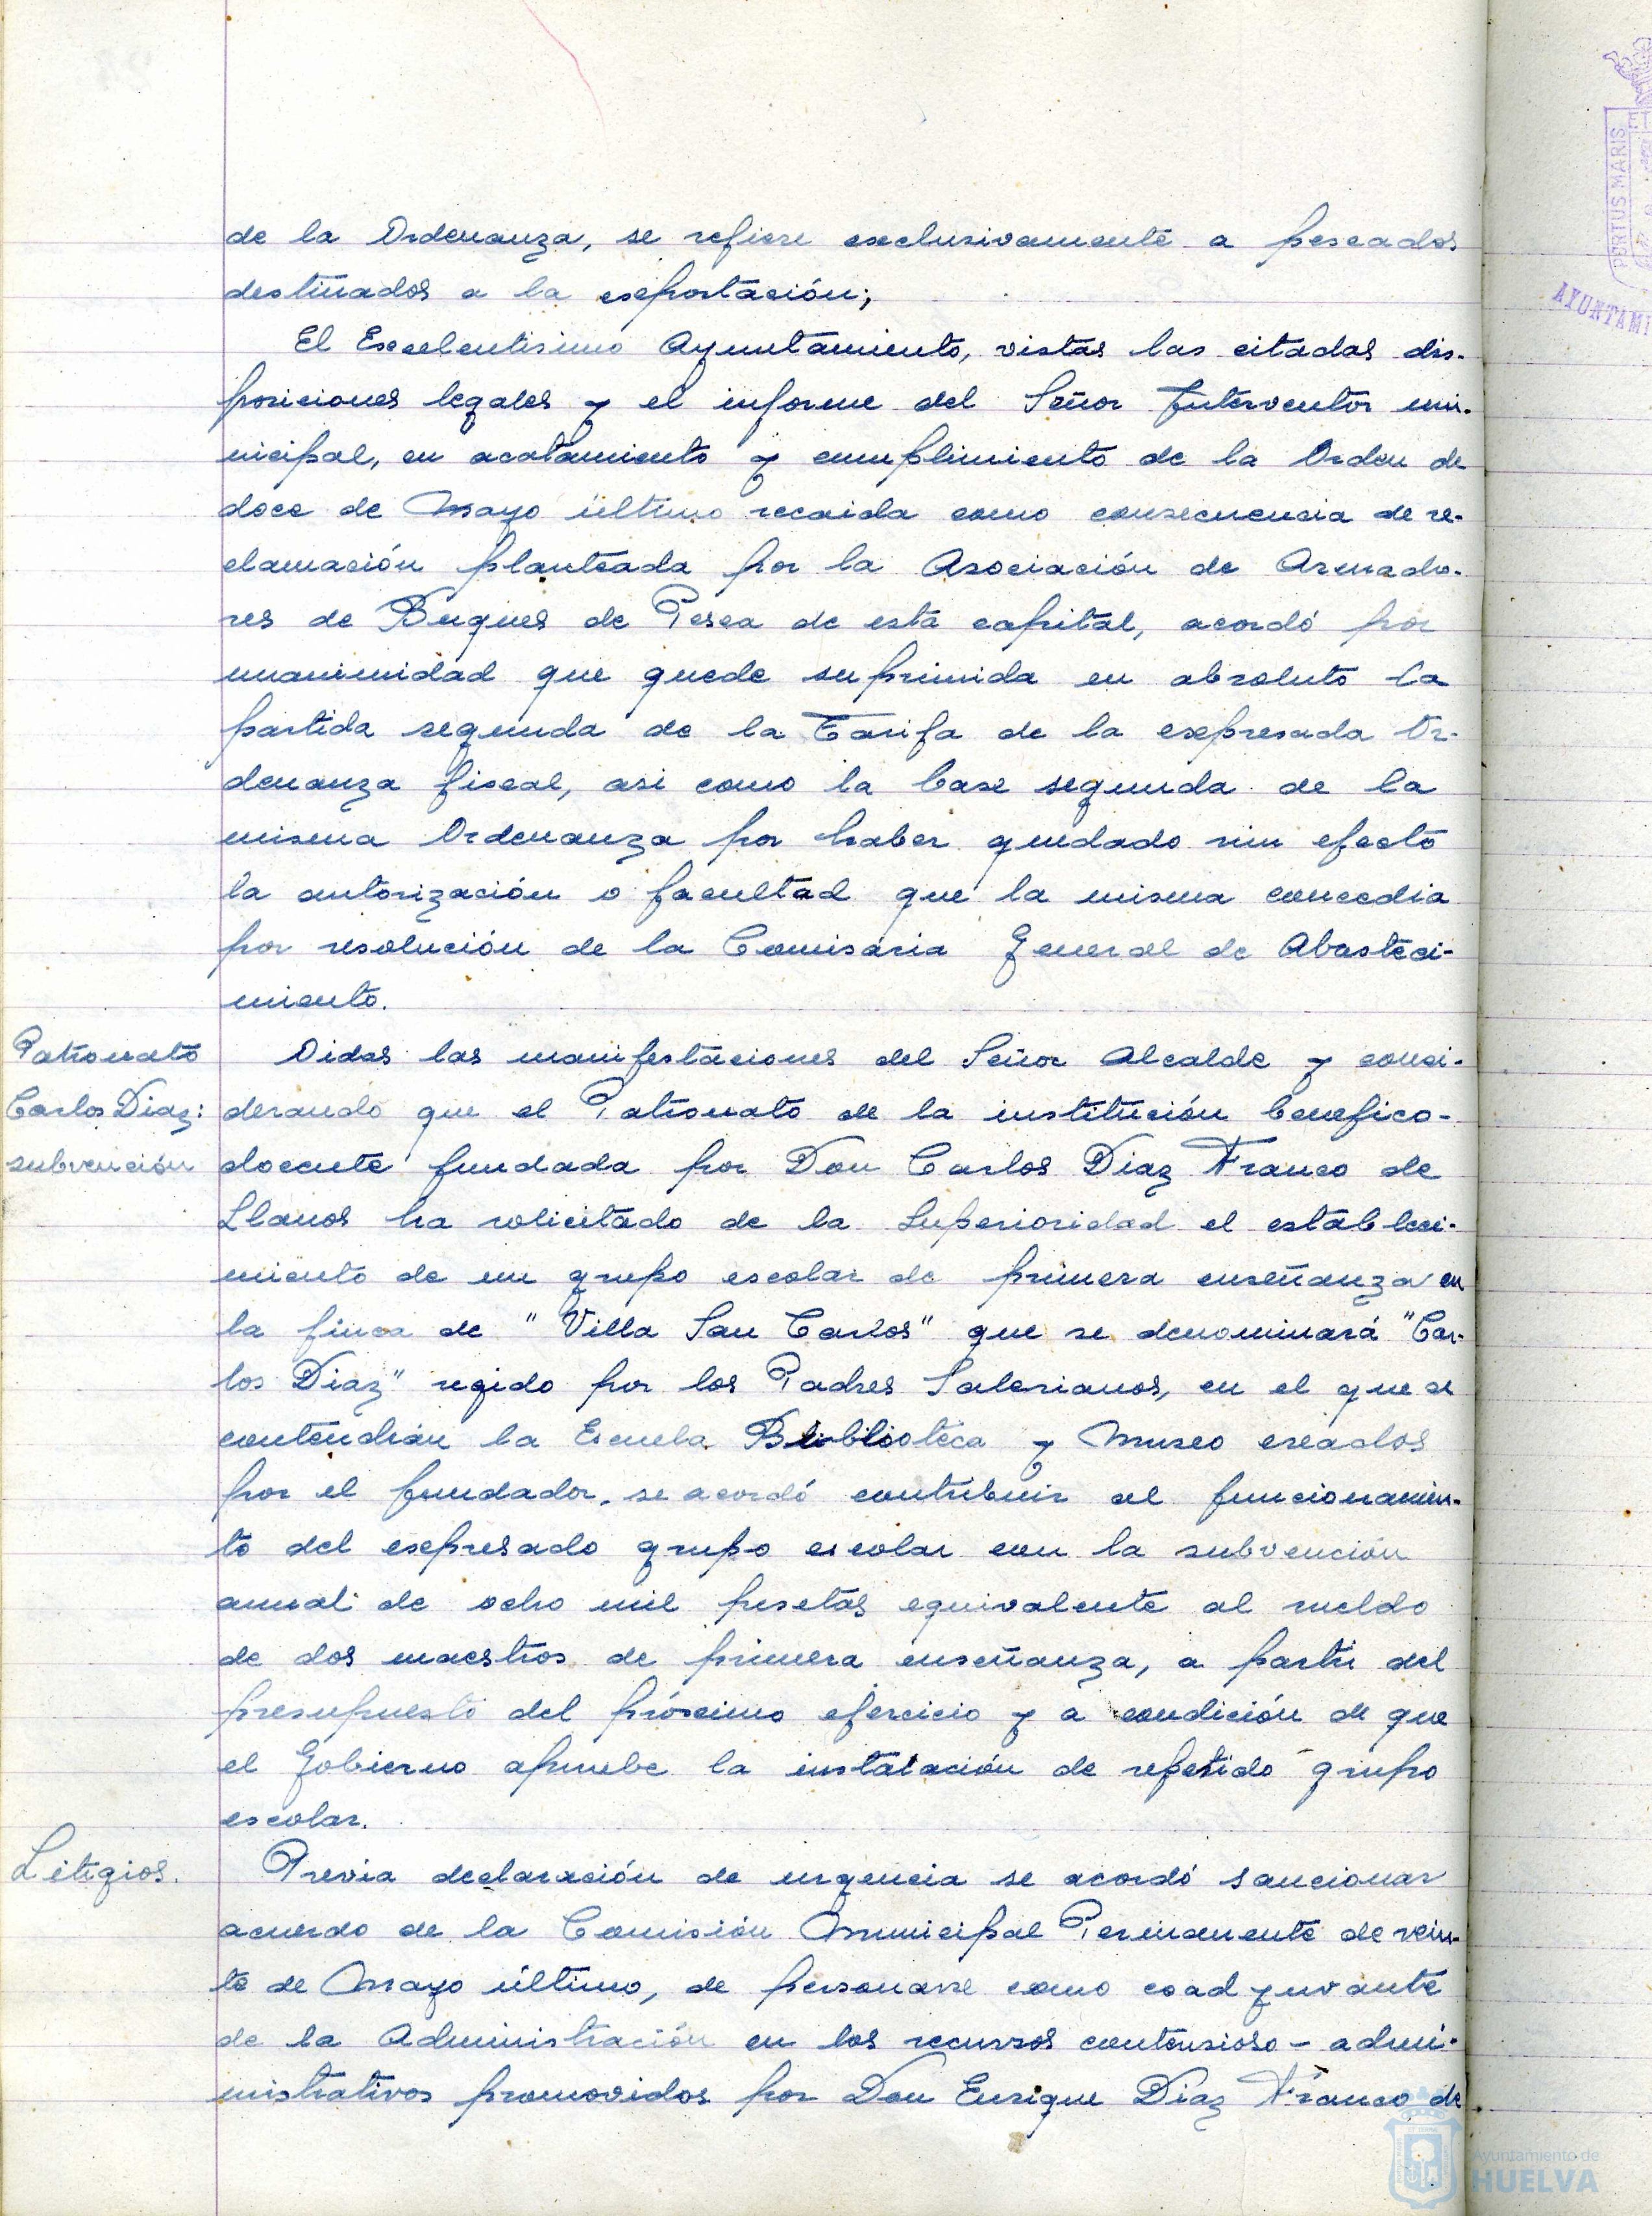 de la Ordenanza, se refiere exclusivamente a pescados
destinados a la exportación;
El Excelentisimo Ayuntamiento, vistas las citadas dis-
posiciones legales y el informe del Señor Interventor mu-
nicipal, en acatamiento y cumplimiento de la Orden de
doce de Mayo último recaida como consecuencia de re-
clamación planteada por la Asociación de Armado-
res de Buques de Pesca de esta capital, acordó por
unanimidad que quede suprimida en absoluto la
partida segunda de la Tarifa de la expresada Or-
denanza fiscal, asi como la base segunda de la
misma Ordenanza por haber quedado sin efecto
la autorización o facultad que la misma concedia
por resolución de la Comisaria General de Abasteci-
miento.
Patronato
Carlos Diaz:
subvención
Oidas las manifestaciones del Señor Alcalde y consi-
derando que el Patronato de la institución benefico-
docente fundada por Don Carlos Diaz Franco de
Llanos ha solicitado de la Superioridad el estableci-
miento de un grupo escolar de primera enseñanza en
la finca de "Villa San Carlos" que se denominará "Car-
los Diaz" regido por los Padres Salesianos, en el que se
contendrán la Escuela Biblioteca y Museo creados
por el fundador, se acordó contribuir al funcionamien-
to del expresado grupo escolar con la subvención
anual de ocho mil pesetas equivalente al sueldo
de dos maestros de primera enseñanza, a partir del
presupuesto del próximo ejercicio y a condición de que
el Gobierno apruebe la instalación de repetido grupo
escolar.
Litigios.
Previa declaración de urgencia se acordó sancionar
acuerdo de la Comisión Municipal Permanente de vein-
te de Mayo último, de personarse como coadyuvante
de la Administración en los recursos contensioso-admi-
nistrativos promovidos por Don Enrique Diaz Franco de
PORTUS MARIS
AYUNTAMI
Ayuntamiento de
HUELVA